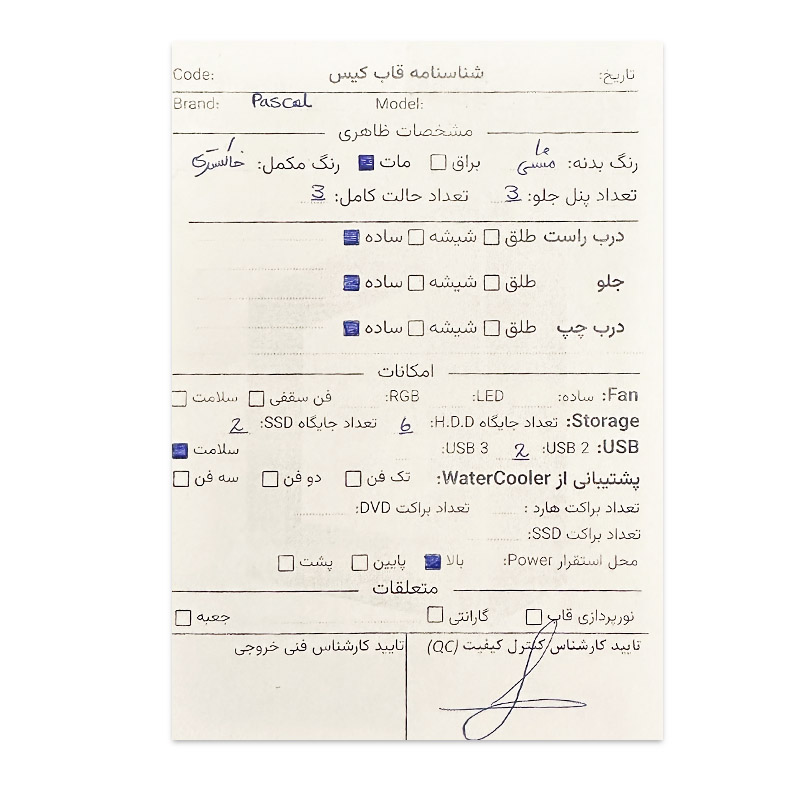 تاریخ: شناسنامه قاب کیس Code:
Brand: Pascal Model:
مشخصات ظاهری
رنگ بدنه: مشکی براق مات رنگ مکمل: خاکستری
تعداد پنل جلو: 3 تعداد حالت کامل: 3
درب راست طلق شیشه ساده
جلو طلق شیشه ساده
درب چپ طلق شیشه ساده
امکانات
Fan: ساده: LED: RGB: فن سقفی سلامت
Storage: تعداد جایگاه H.D.D: 6 تعداد جایگاه SSD: 2
USB: USB 2: 2 USB 3: سلامت
پشتیبانی از WaterCooler: تک فن دو فن سه فن
تعداد براکت هارد : تعداد براکت DVD:
تعداد براکت SSD:
محل استقرار Power: بالا پایین پشت
متعلقات
نورپردازی قاب گارانتی جعبه
تایید کارشناس کنترل کیفیت (QC) تایید کارشناس فنی خروجی